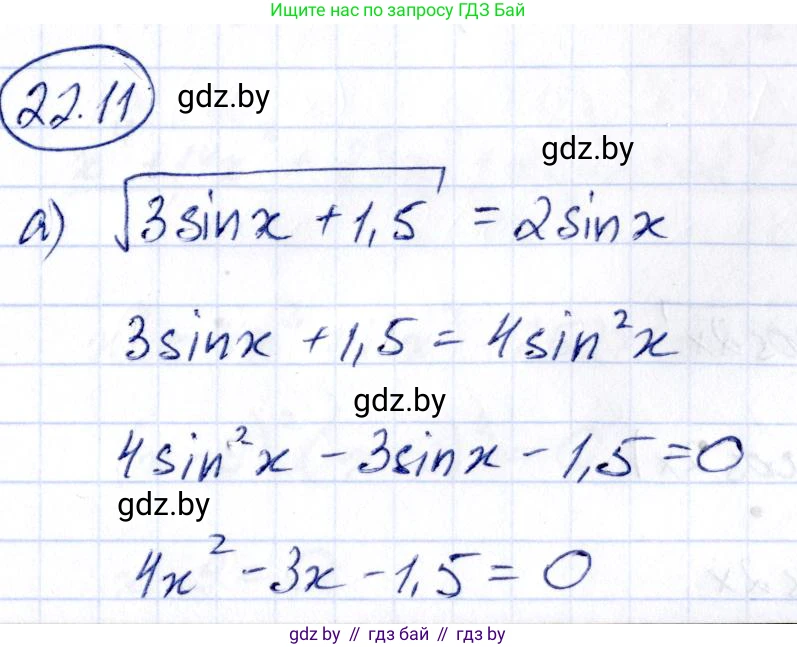 Ищите нас по запросу ГДЗ Бай
22.11 gdz.by
gdz.by
а) √(3sinx + 1,5) = 2sinx
3sinx + 1,5 = 4sin²x
gdz.by
4sin²x - 3sinx - 1,5 = 0
gdz.by
4x² - 3x - 1,5 = 0
gdz.by // гдз бай // гдз by